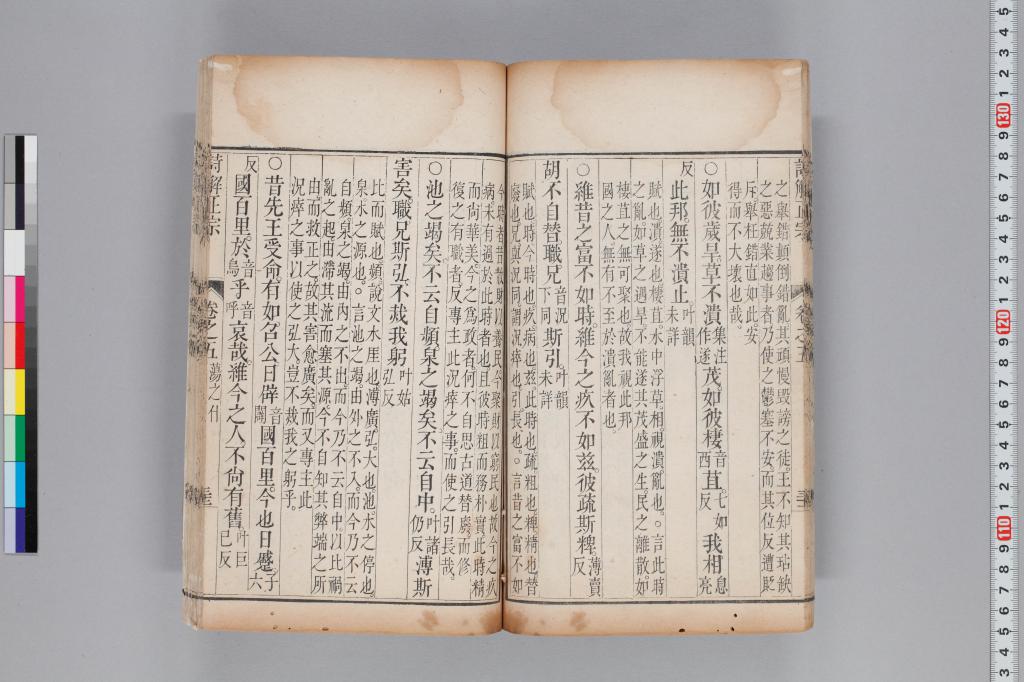 之舉錯顛倒錯亂其頑慢毀謗之徒。王不知其玷缺
之惡兢業趨事者乃使之鬱塞不安而其位反遭貶
斥舉枉錯直如此安
得而不大壞也哉。
○如彼歲旱。草不潰集注作遂茂。如彼棲音西苴七如反我相息亮
反此邦無不潰止叶韻未詳
賦也。潰遂也棲苴。水中浮草。相。視。潰亂也。○言此時
之亂如草之遇旱。不能遂其茂盛之生。民之離散。如
棲苴之無可聚也。故我視此邦
國之人無有不至於潰亂者也。
○維昔之富不如時。維今之疚不如茲。彼疏斯粺薄賣反
胡不自替。職兄音況下同斯引。叶韻未詳
賦也。時今時也。疚。病也。茲。此時也。疏。粗也。粺。精也。替
廢也。兄與況同。謂況瘁也。引。長也。○言昔之富不如
今時者昔散財以養民今聚財以窮民也。故今之疚
病。未有過於此時者也。且彼時粗而務朴實此時精
而尚華美今之為政者何不自思古道替廢。而修
復之有職者反專主此況瘁之事。而使之引長哉。
○池之竭矣。不云自頻。泉之竭矣。不云自中。叶諸仍反溥斯
害矣。職兄斯弘。不烖我躬叶姑弘反
比而賦也。頻。說文水厓也。溥。廣弘。大也。池水之停也。
泉水之源也。○言池之竭。由外之不入。而今乃不云
自頻。泉之竭由內之不出。而今乃不云自中以此禍
亂之起由滯其流而塞其源今不自知其弊端之所
由。而救正之。故其害愈廣矣而又專主此
況瘁之事以使之弘大。豈不烖我之躬乎。
○昔先王受命。有如召公。日辟音闢國百里。今也日蹙子六
反國百里。於音烏乎音呼哀哉。維今之人。不尚有舊叶巨已反
詩解正宗
卷之五
蕩之什